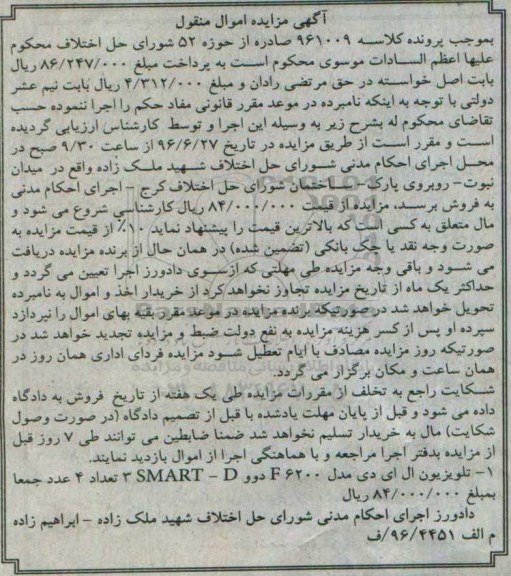 آگهی مزایده اموال منقول
بموجب پرونده کلاسه ۹۶۱۰۰۹ صادره از حوزه ۵۲ شورای حل اختلاف محکوم
علیها اعظم السادات موسوی محکوم است به پرداخت مبلغ ۸۶/۲۴۷/۰۰۰ ریال
بابت اصل خواسته در حق مرتضی رادان و مبلغ ۴/۳۱۲/۰۰۰ ریال بابت نیم عشر
دولتی با توجه به اینکه نامبرده در موعد مقرر قانونی مفاد حکم را اجرا ننموده حسب
تقاضای محکوم له بشرح زیر به وسیله این اجرا و توسط کارشناس ارزیابی گردیده
است و مقرر است از طریق مزایده در تاریخ ۹۶/۶/۲۷ از ساعت ۹/۳۰ صبح در
محل اجرای احکام مدنی شورای حل اختلاف شهید ملک زاده واقع در میدان
نبوت- روبروی پارک - ساختمان شورای حل اختلاف کرج - اجرای احکام مدنی
به فروش برسد، مزایده از قیمت ۸۴/۰۰۰/۰۰۰ ریال کارشناسی شروع می شود و
مال متعلق به کسی است که بالاترین قیمت را پیشنهاد نماید ۱۰٪ از قیمت مزایده به
صورت وجه نقد یا چک بانکی (تضمین شده) در همان حال از برنده مزایده دریافت
می شود و باقی وجه مزایده طی مهلتی که از سوی دادورز اجرا تعیین می گردد و
حداکثر یک ماه از تاریخ مزایده تجاوز نخواهد کرد از خریدار اخذ و اموال به نامبرده
تحویل خواهد شد در صورتیکه برنده مزایده در موعد مقرر بقیه بهای اموال را نپردازد
سپرده او پس از کسر هزینه مزایده به نفع دولت ضبط و مزایده تجدید خواهد شد در
صورتیکه روز مزایده مصادف با ایام تعطیل شود مزایده فردای اداری همان روز در
همان ساعت و مکان برگزار می گردد.
شکایت راجع به تخلف از مقررات مزایده طی یک هفته از تاریخ فروش به دادگاه
داده می شود و قبل از پایان مهلت یادشده با قبل از تصمیم دادگاه (در صورت وصول
شکایت) مال به خریدار تسلیم نخواهد شد ضمنا ضابطین می توانند طی ۷ روز قبل
از مزایده بدفتر اجرا مراجعه و با هماهنگی اجرا از اموال بازدید نمایند.
۱- تلویزیون ال ای دی مدل F۶۲۰۰ دوو SMART - D ۳ تعداد ۴ عدد جمعا
بمبلغ ۸۴/۰۰۰/۰۰۰ ریال
دادورز اجرای احکام مدنی شورای حل اختلاف شهید ملک زاده - ابراهیم زاده
م الف ۹۶/۴۴۵۱/ف